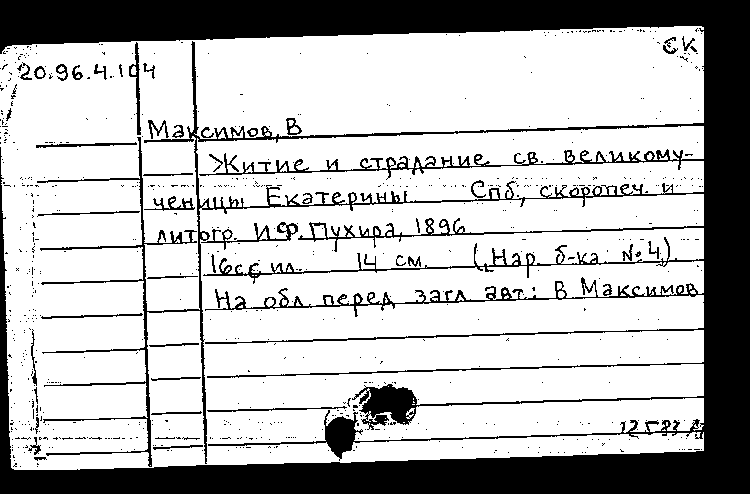 СК
20.96.4.104
Максимов, В
Житие и страдание св. великому-
ченицы Екатерины Спб., скоропеч. и
литогр. И.Ф. Пухира, 1896
16 с с ил. 14 см. („Нар. б-ка № 4).
На обл. перед загл авт.: В Максимов